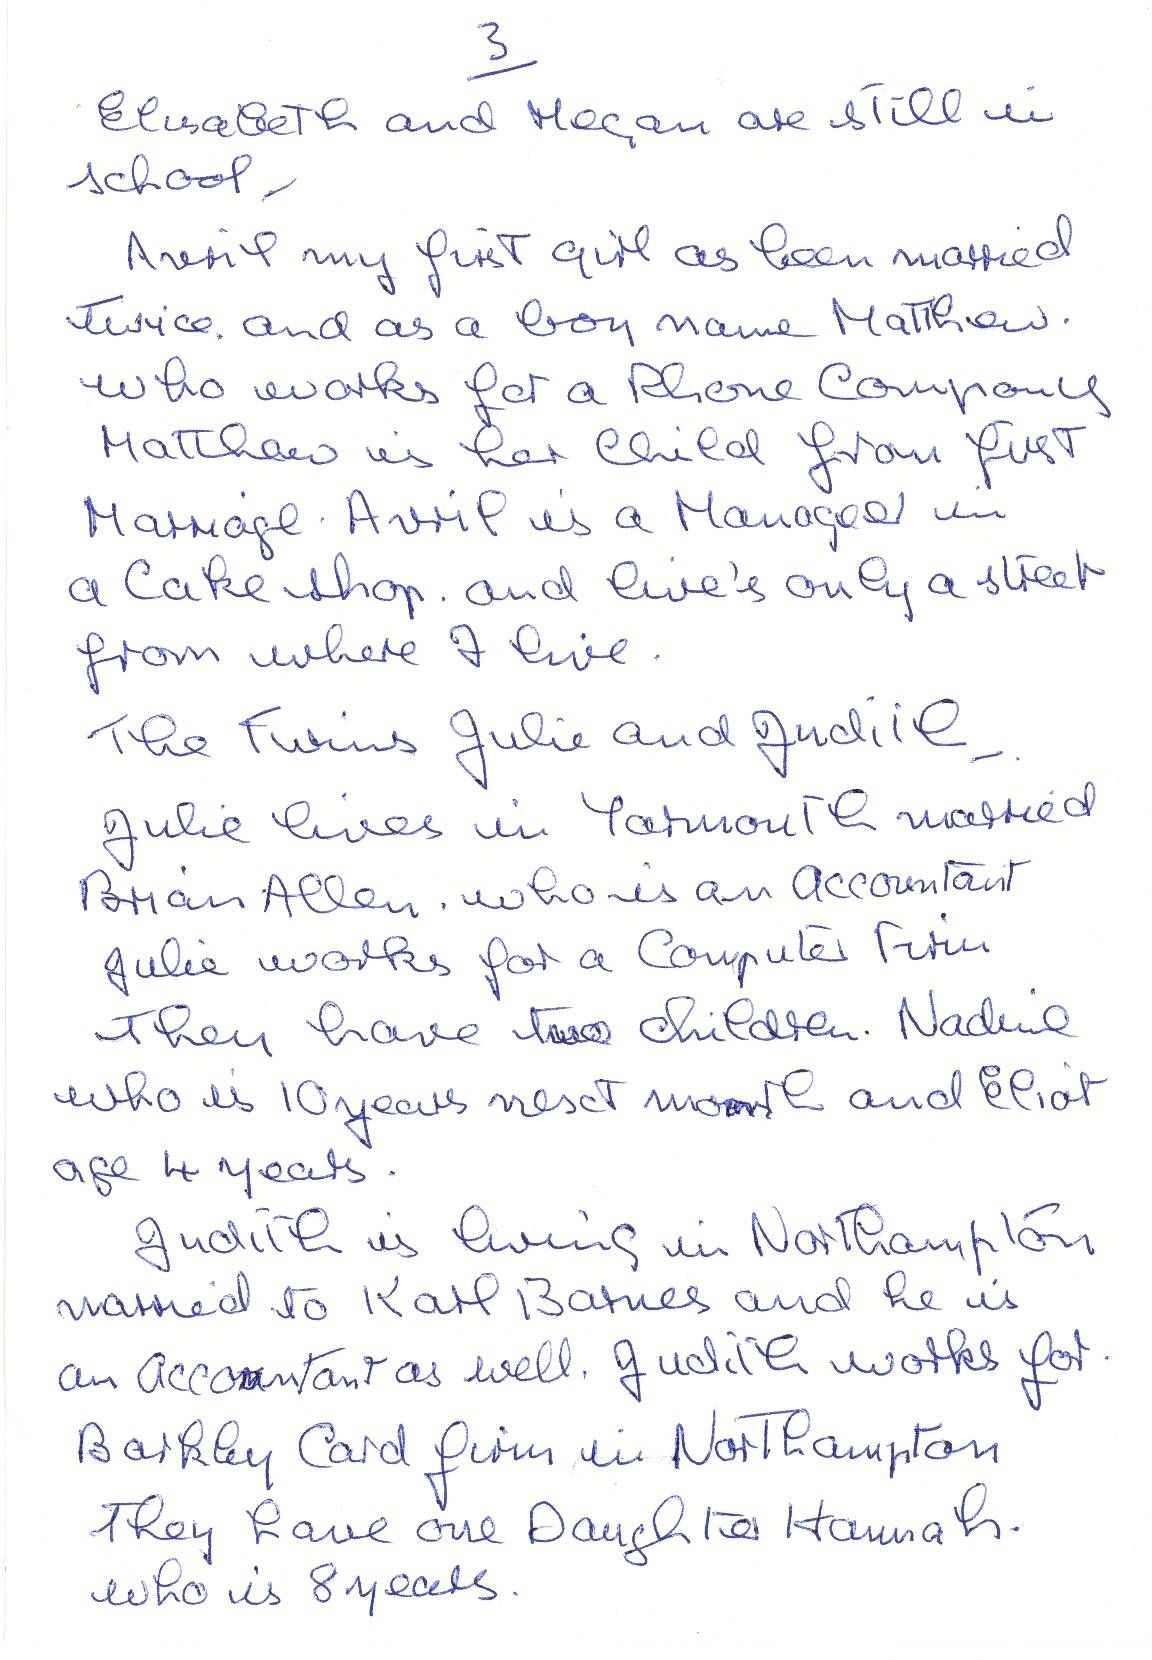 3
Elisabeth and Megan are still in
school,
Avril my first girl as been married
twice. and as a boy name Matthew.
who works for a Phone Company
Matthew is her Child from first
Marriage. Avril is a Manager in
a Cake shop. and live's only a street
from where I live.
The Twins Julie and Judith.
Julie lives in Yarmouth married
Brian Allen. who is an Accountant
Julie works for a Computer Firm
They have two children. Nadine
who is 10 years next month and Eliot
age 4 years.
Judith is living in Northampton
married to Karl Barnes and he is
an Accountant as well. Judith works for.
Barkley Card firm in Northampton
They have one Daughter Hannah.
who is 8 years.